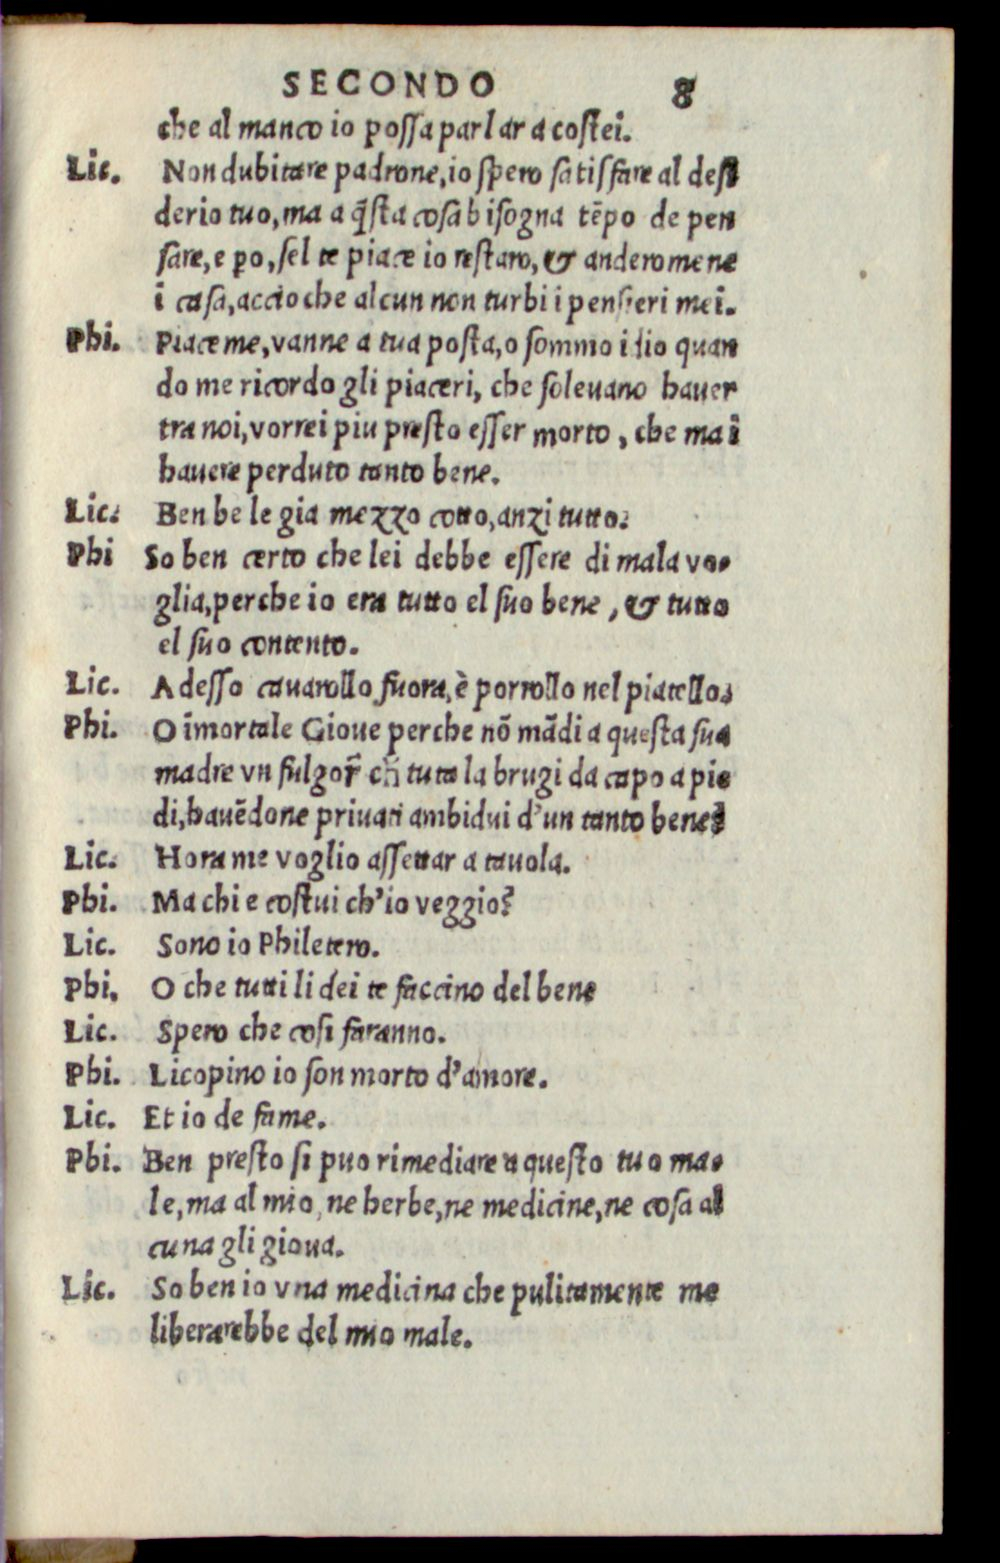 SECONDO 8
che al manco io poſſa parlar a coſtei.
Lic. Non dubitare padrone, io ſpero ſatisfare al deſi
derio tuo, ma a q̃ſta coſa biſogna tẽpo de pen
ſare, e po, ſel te piace io reſtaro, & andero mene
ī caſa, accio che alcun non turbi i penſieri mei.
Phi. Piace me, vanne a tua poſta, o ſommo idio quan
do me ricordo gli piaceri, che ſolevano haver
tra noi, vorrei piu preſto eſſer morto, che mai
havere perduto tanto bene.
Lic. Ben be le gia mezzo cotto, anzi tutto.
Phi So ben certo che lei debbe eſſere di mala vo-
glia, perche io era tutto el ſuo bene, & tutto
el ſuo contento.
Lic. Adeſſo cavarollo fuora, è porrollo nel piatello.
Phi. O īmortale Giove perche nõ mãdi a queſta ſua
madre vn fulgor̃ ch̃ tuta la brugi da capo a pie
di, havẽdone privati ambidui d'un tanto bene?
Lic. Hora me voglio aſſettar a tavola.
Phi. Ma chi e coſtui ch'io veggio?
Lic. Sono io Philetero.
Phi. O che tutti li dei te faccino del bene
Lic. Spero che coſi faranno.
Phi. Licopino io ſon morto d'amore.
Lic. Et io de fame.
Phi. Ben preſto ſi puo rimediare a queſto tuo ma-
le, ma al mio, ne herbe, ne medicine, ne coſa al
cuna gli giova.
Lic. So ben io vna medicina che pulitamente me
liberarebbe del mio male.